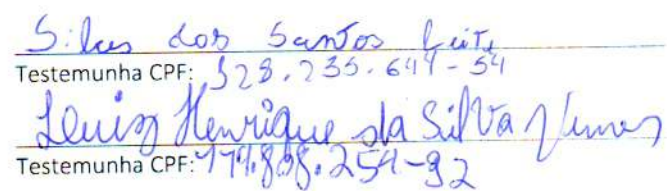 Silas dos Santos Leite
Testemunha CPF: 528.235.644-54
Luiz Henrique da Silva
Testemunha CPF: 174.898.254-92